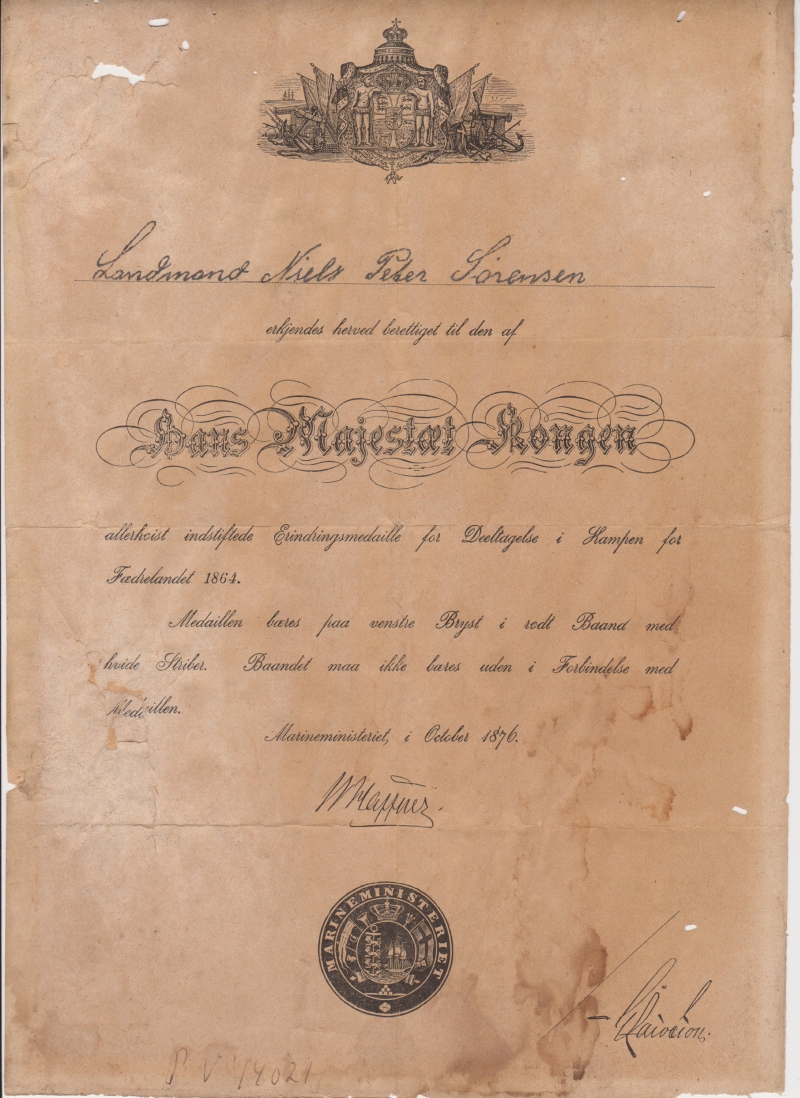 Landmand Niels Peter Sörensen
erkjendes herved berettiget til den af
Hans Majestæt Kongen
allerhöist indstiftede Erindringsmedaille for Deeltagelse i Kampen for
Fædrelandet 1864.
Medaillen bæres paa venstre Bryst i rødt Baand med
hvide Striber. Baandet maa ikke bæres uden i Forbindelse med
Medaillen.
Marineministeriet, i October 1876.
MARINEMINISTERIET
P V 14021